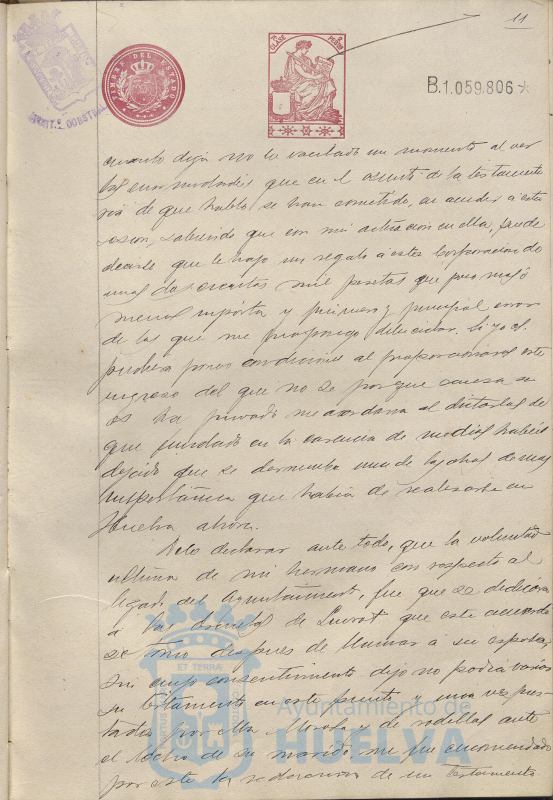 11
TIMBRE DEL ESTADO
B.1.059.806
cuanto dija no he vacilado un momento al ver
las enormidades que en el asunto de la testamenta
ria de que hablo se han cometido, en acceder a esta
sabiendo que con mi actuación en ella, puede
decirse que le hago un regalo a esta Corporación de
unas doscientas mil pesetas que poco más ó
menos importa y primero y principal
de las que me propongo Si yo al
pudiera poner condiciones al proporcionaros este
ingreso del que no se por que causa se
os ha privado me a dictarlas de
que fundado en la carencia de medios habeis
dejado que se una de las obras de mas
importancia que habia de realizarse en
Huelva ahora.
Debo declarar ante todo, que la voluntad
ultima de mi hermano con respecto al
legado del Ayuntamiento, fue que se dedicara
a las Escuelas de que este acuerdo
se tomó despues de llamar a su esposa,
sin cuyo consentimiento dijo no podia variar
su testamento en este punto y una vez
por ella y de rodillas ante
el lecho de su marido, me fue encomendado
por este la redaccion de un testamento
ET TERRAE
Ayuntamiento de
HUELVA